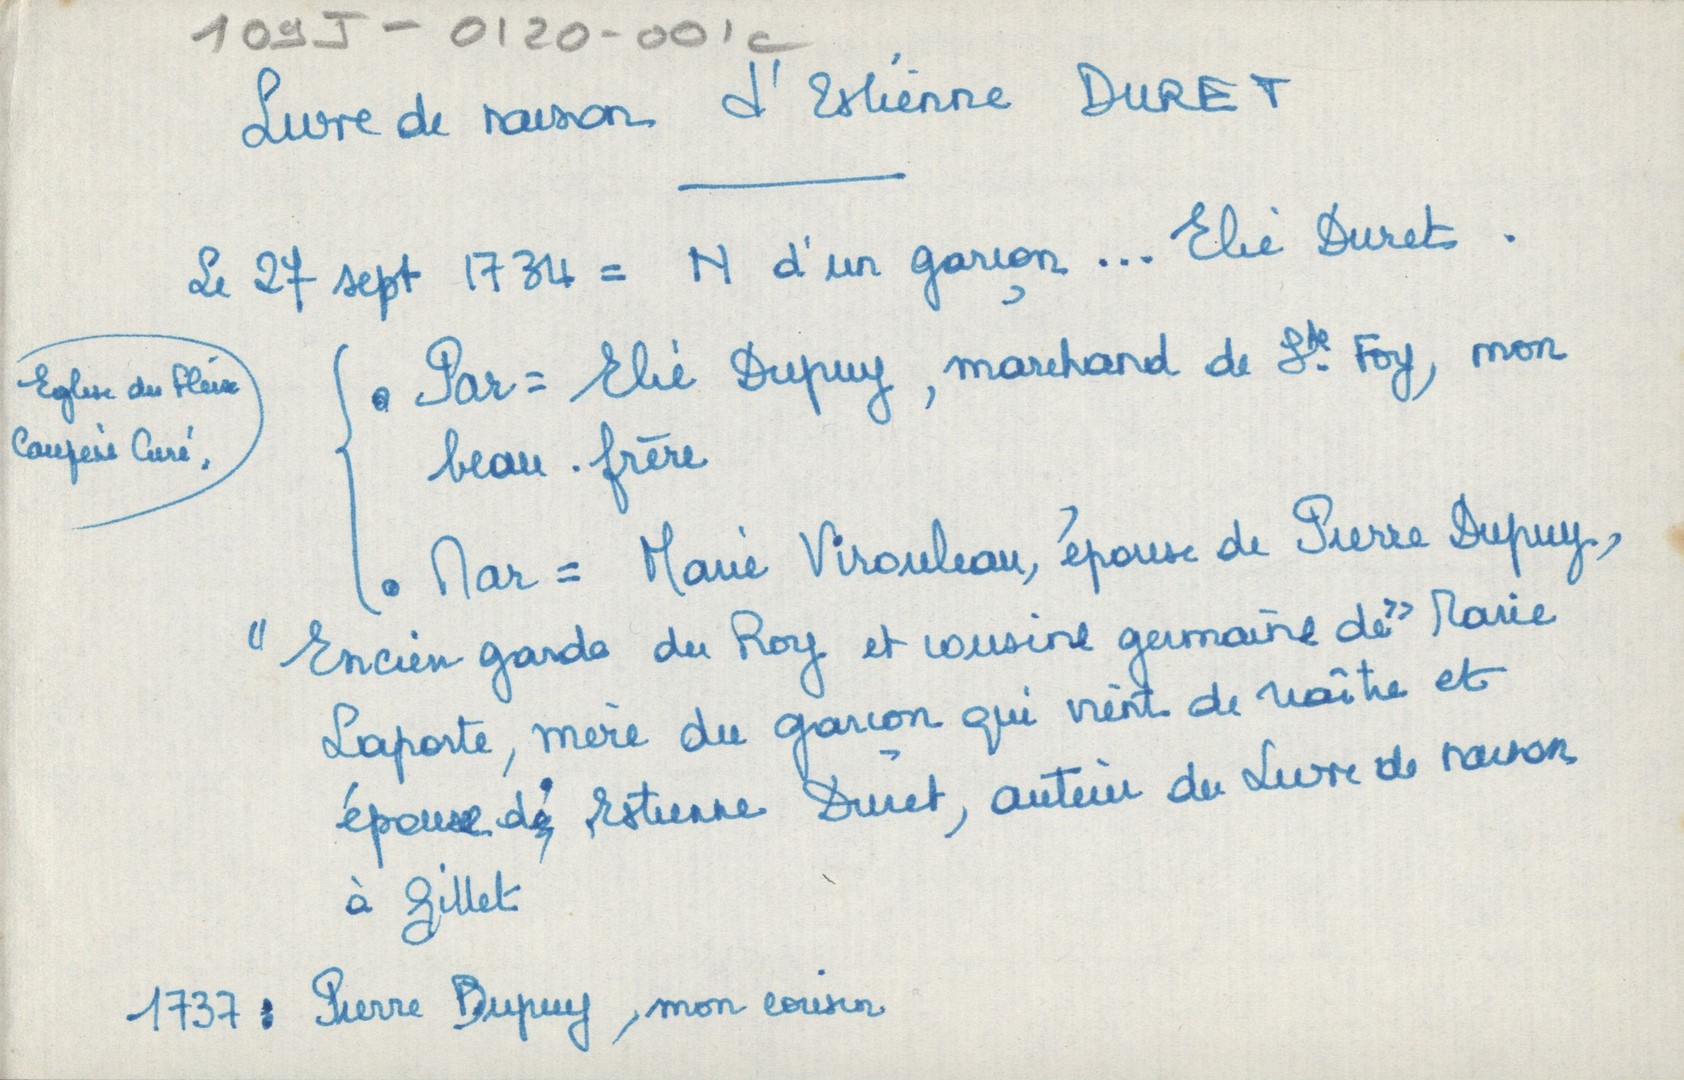 109J - 0120-001c
Livre de raison d'Estienne DURET
Le 27 sept 1734 = N d'un garçon ... Elie Duret .
Eglise du Fleix
Caupène Curé.
• Par = Elie Dupuy, marchand de Ste. Foy, mon
beau-frère
• Mar = Marie Virouleau, épouse de Pierre Dupuy,
" Encien garde du Roy et cousine germaine de" Marie
Laporte, mère du garçon qui vient de naître et
épouse de Estienne Duret, auteur du Livre de raison
à Gillet
1737 : Pierre Dupuy, mon cousin